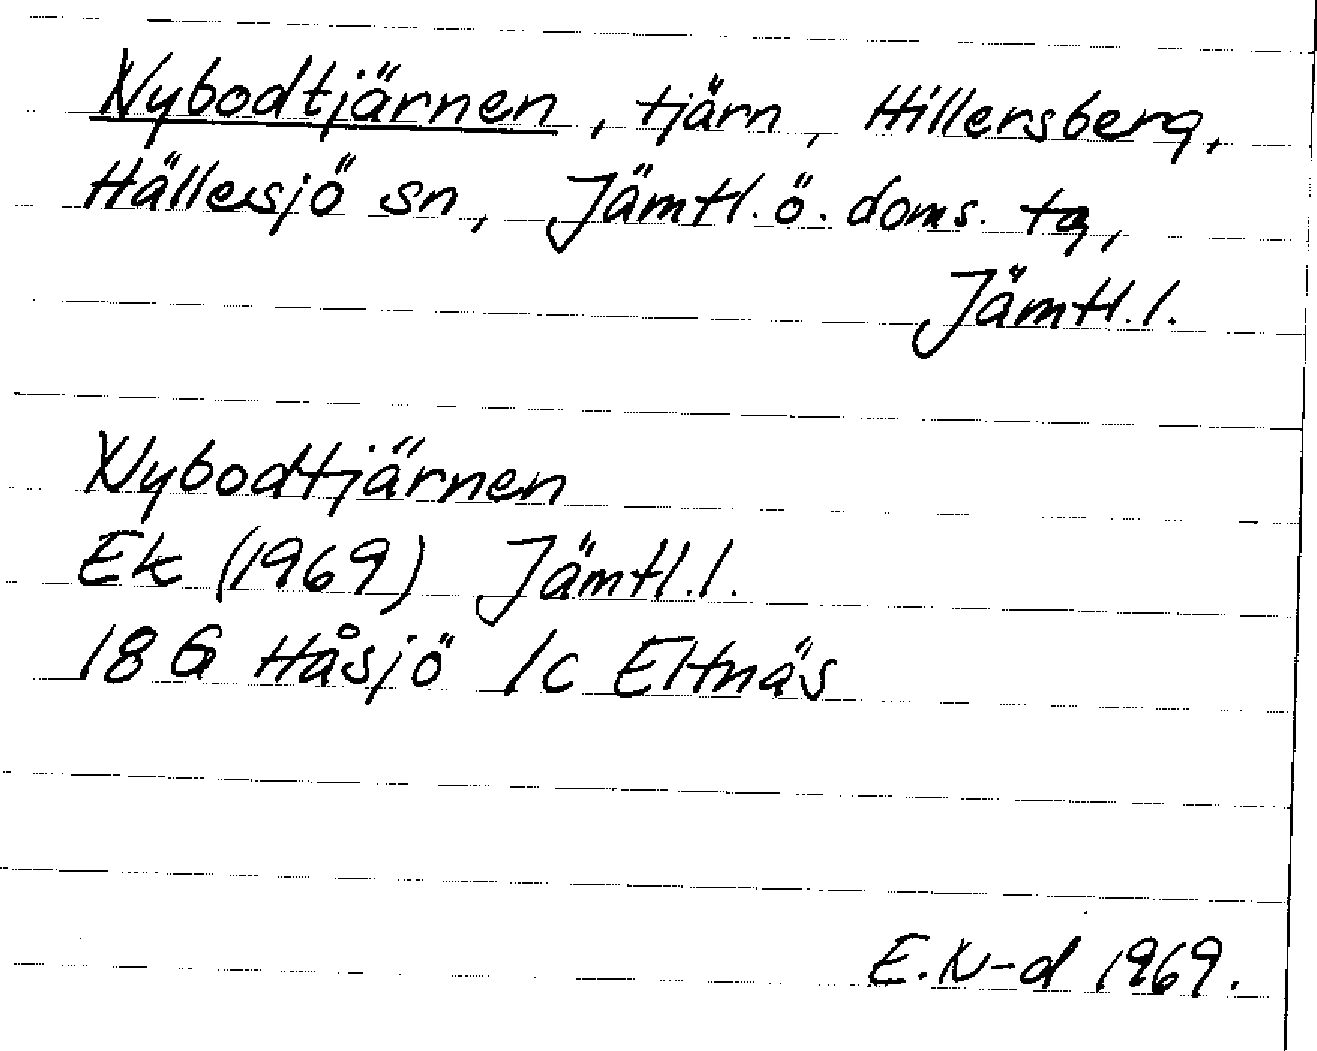 Nybodtjärnen, tjärn, Hillersberg,
Hällesjö sn, Jämtl. ö. doms. tg,
Jämtl. l.
Nybodtjärnen
Ek (1969) Jämtl. l.
18 G Håsjö 1c Eltnäs
E.N-d 1969.